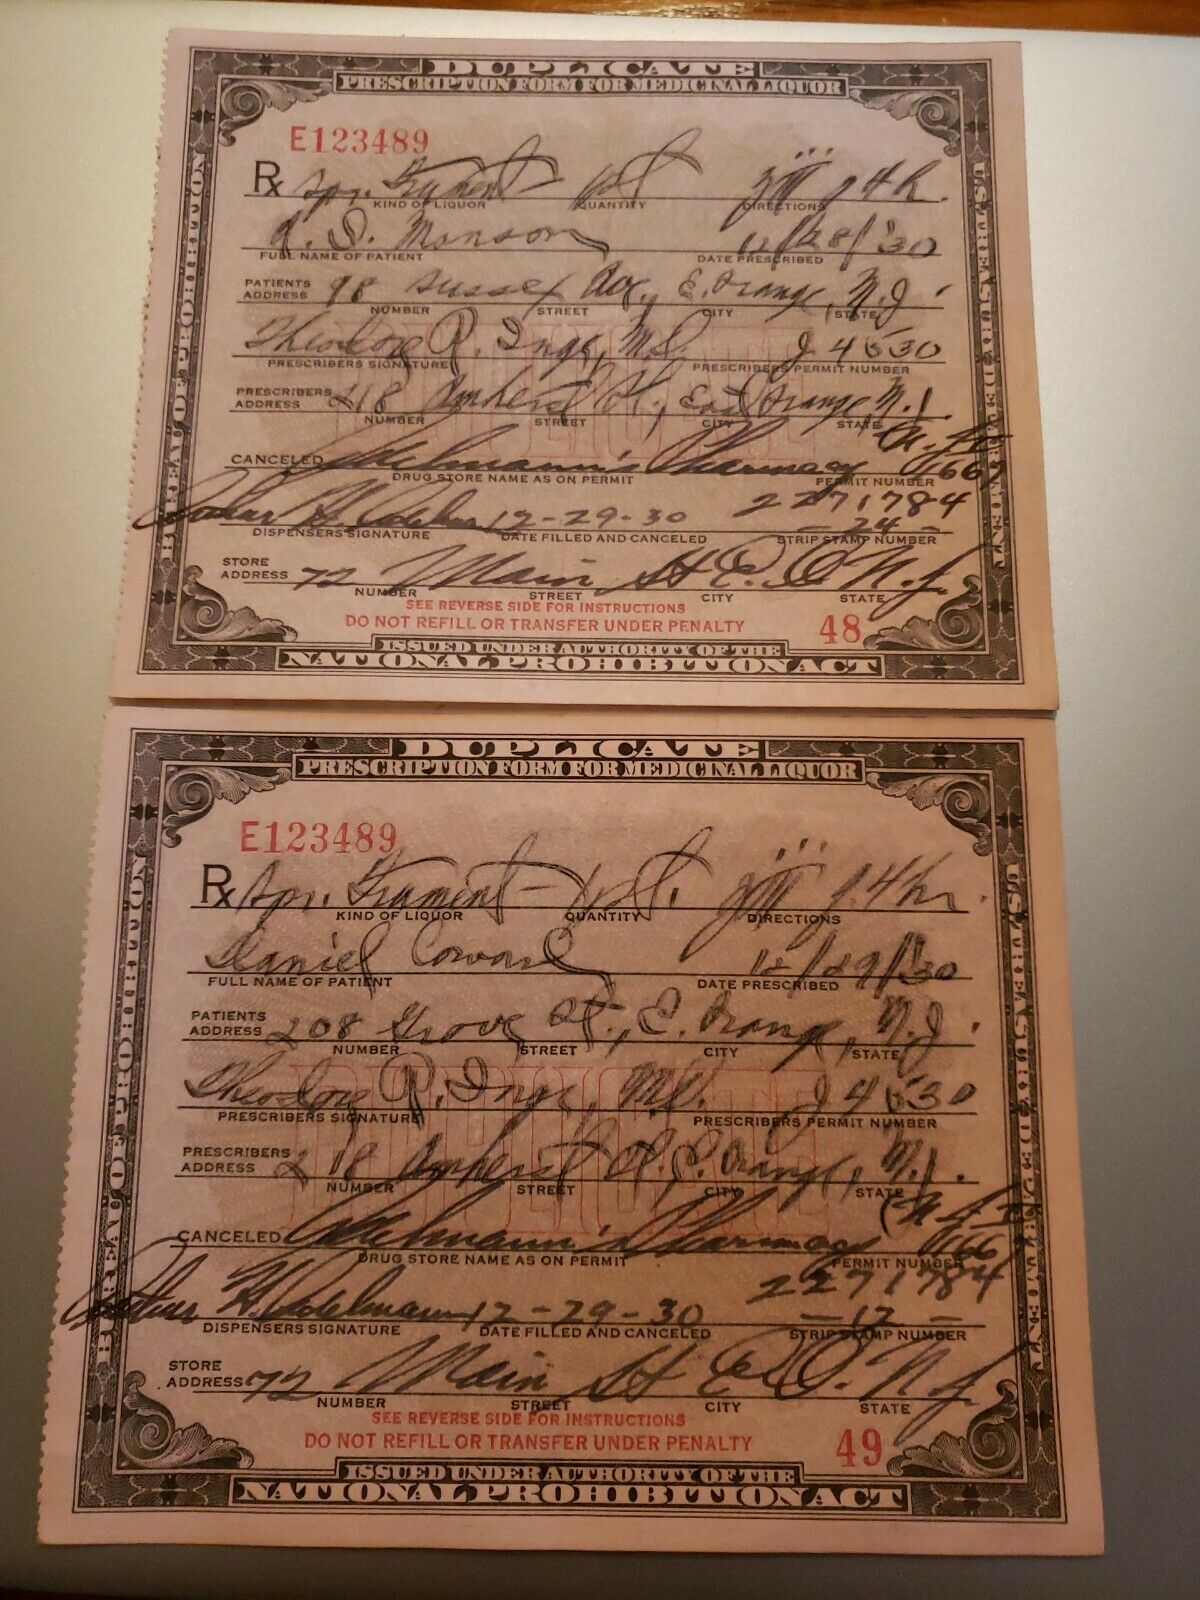 DUPLICATE
PRESCRIPTION FORM FOR MEDICINAL LIQUOR
BUREAU OF PROHIBITION
E123489
Rx Spt. Frument
KIND OF LIQUOR QUANTITY DIRECTIONS
Manson 12/28/30
FULL NAME OF PATIENT DATE PRESCRIBED
PATIENTS ADDRESS 98 Sussex Ave., E. Orange, N.J.
NUMBER STREET CITY STATE
Theodore R. Inge, M.D. J 4530
PRESCRIBERS SIGNATURE PRESCRIBERS PERMIT NUMBER
PRESCRIBERS ADDRESS 218 Amherst St., East Orange, N.J.
NUMBER STREET CITY STATE
CANCELED Adelmann's Pharmacy
DRUG STORE NAME AS ON PERMIT PERMIT NUMBER
2271784
12-29-30 - 24 -
DISPENSERS SIGNATURE DATE FILLED AND CANCELED STRIP STAMP NUMBER
STORE ADDRESS 72 Main St E.O. N.J.
NUMBER STREET CITY STATE
SEE REVERSE SIDE FOR INSTRUCTIONS
DO NOT REFILL OR TRANSFER UNDER PENALTY 48
ISSUED UNDER AUTHORITY OF THE
NATIONAL PROHIBITION ACT
DUPLICATE
PRESCRIPTION FORM FOR MEDICINAL LIQUOR
BUREAU OF PROHIBITION
E123489
Rx Spt. Frument
KIND OF LIQUOR QUANTITY DIRECTIONS
Daniel Coward 12/29/30
FULL NAME OF PATIENT DATE PRESCRIBED
PATIENTS ADDRESS 208 Grove St., E. Orange, N.J.
NUMBER STREET CITY STATE
Theodore R. Inge, M.D. J 4530
PRESCRIBERS SIGNATURE PRESCRIBERS PERMIT NUMBER
PRESCRIBERS ADDRESS 218 Amherst St. E. Orange, N.J.
NUMBER STREET CITY STATE
CANCELED Adelmann's Pharmacy
DRUG STORE NAME AS ON PERMIT PERMIT NUMBER
2271784
H. Adelmann 12-29-30 - 12 -
DISPENSERS SIGNATURE DATE FILLED AND CANCELED STRIP STAMP NUMBER
STORE ADDRESS 72 Main St E.O. N.J.
NUMBER STREET CITY STATE
SEE REVERSE SIDE FOR INSTRUCTIONS
DO NOT REFILL OR TRANSFER UNDER PENALTY 49
ISSUED UNDER AUTHORITY OF THE
NATIONAL PROHIBITION ACT